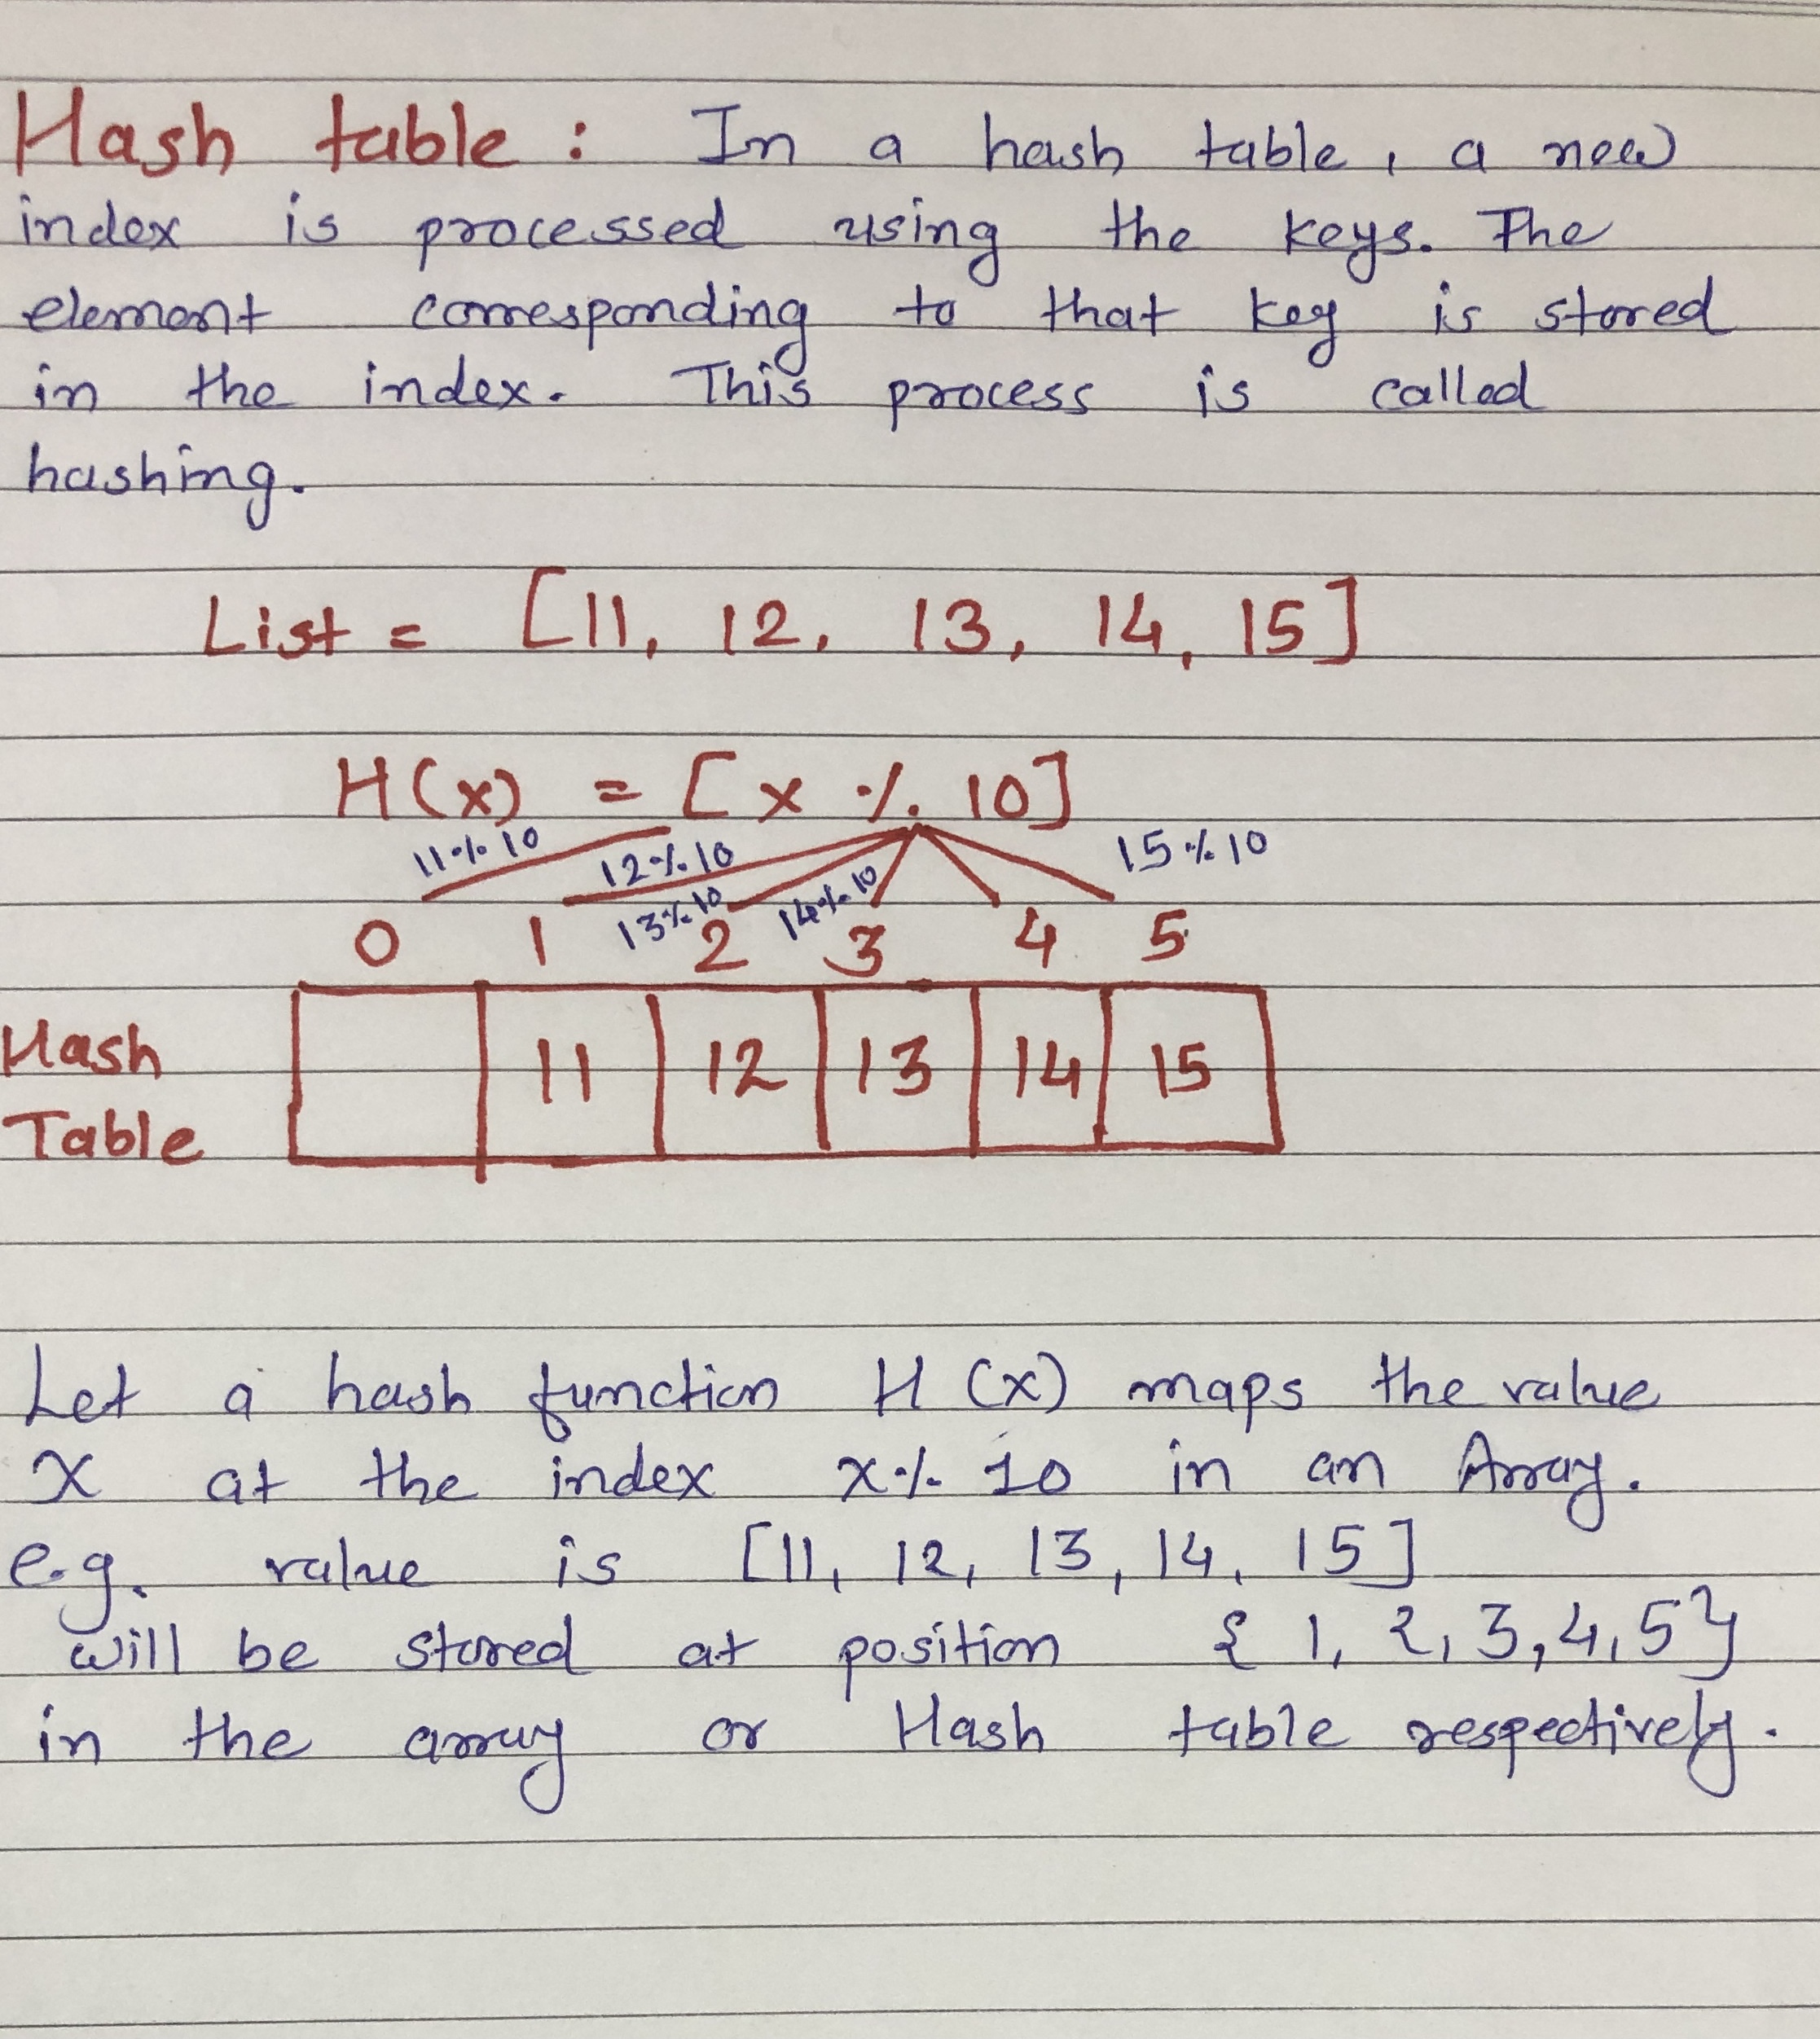 Hash table : In a hash table, a new
index is processed using the keys. The
element corresponding to that key is stored
in the index. This process is called
hashing.
List = [11, 12, 13, 14, 15]
H(x) = [x % 10]
11% 10 12% 10 13% 10 14% 10 15% 10
0 1 2 3 4 5
Hash Table
11 12 13 14 15
Let a hash function H (x) maps the value
x at the index x% 10 in an Array.
e.g. value is [11, 12, 13, 14, 15]
will be stored at position { 1, 2, 3, 4, 5}
in the array or Hash table respectively.